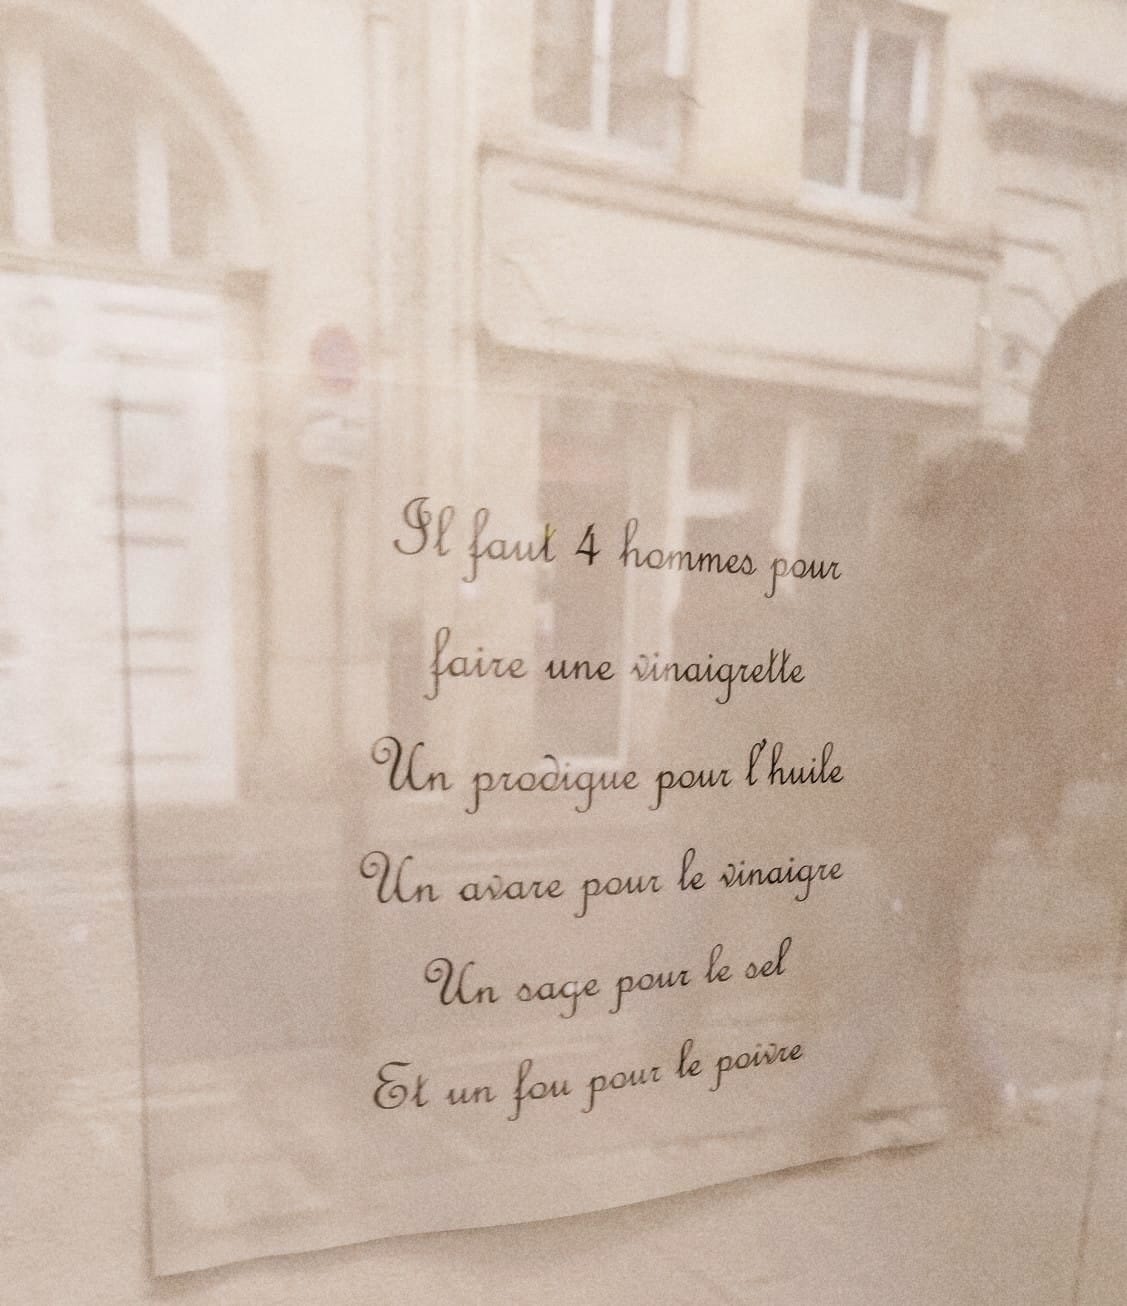 Il faut 4 hommes pour
faire une vinaigrette
Un prodigue pour l'huile
Un avare pour le vinaigre
Un sage pour le sel
Et un fou pour le poivre